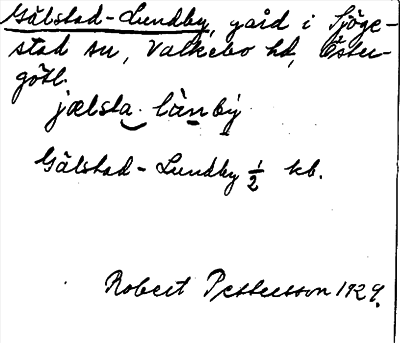 Gälstad-Lundby, gård i Sjöge-
stad sn, Valkebo hd, Öster-
götl.
jælsta länby
Gälstad-Lundby 1/2 kb.
Robert Pettersson 1929.